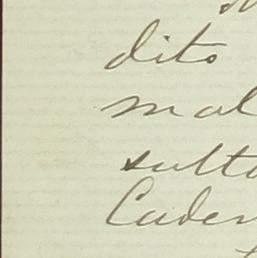 dito
mal
sulta
Cader